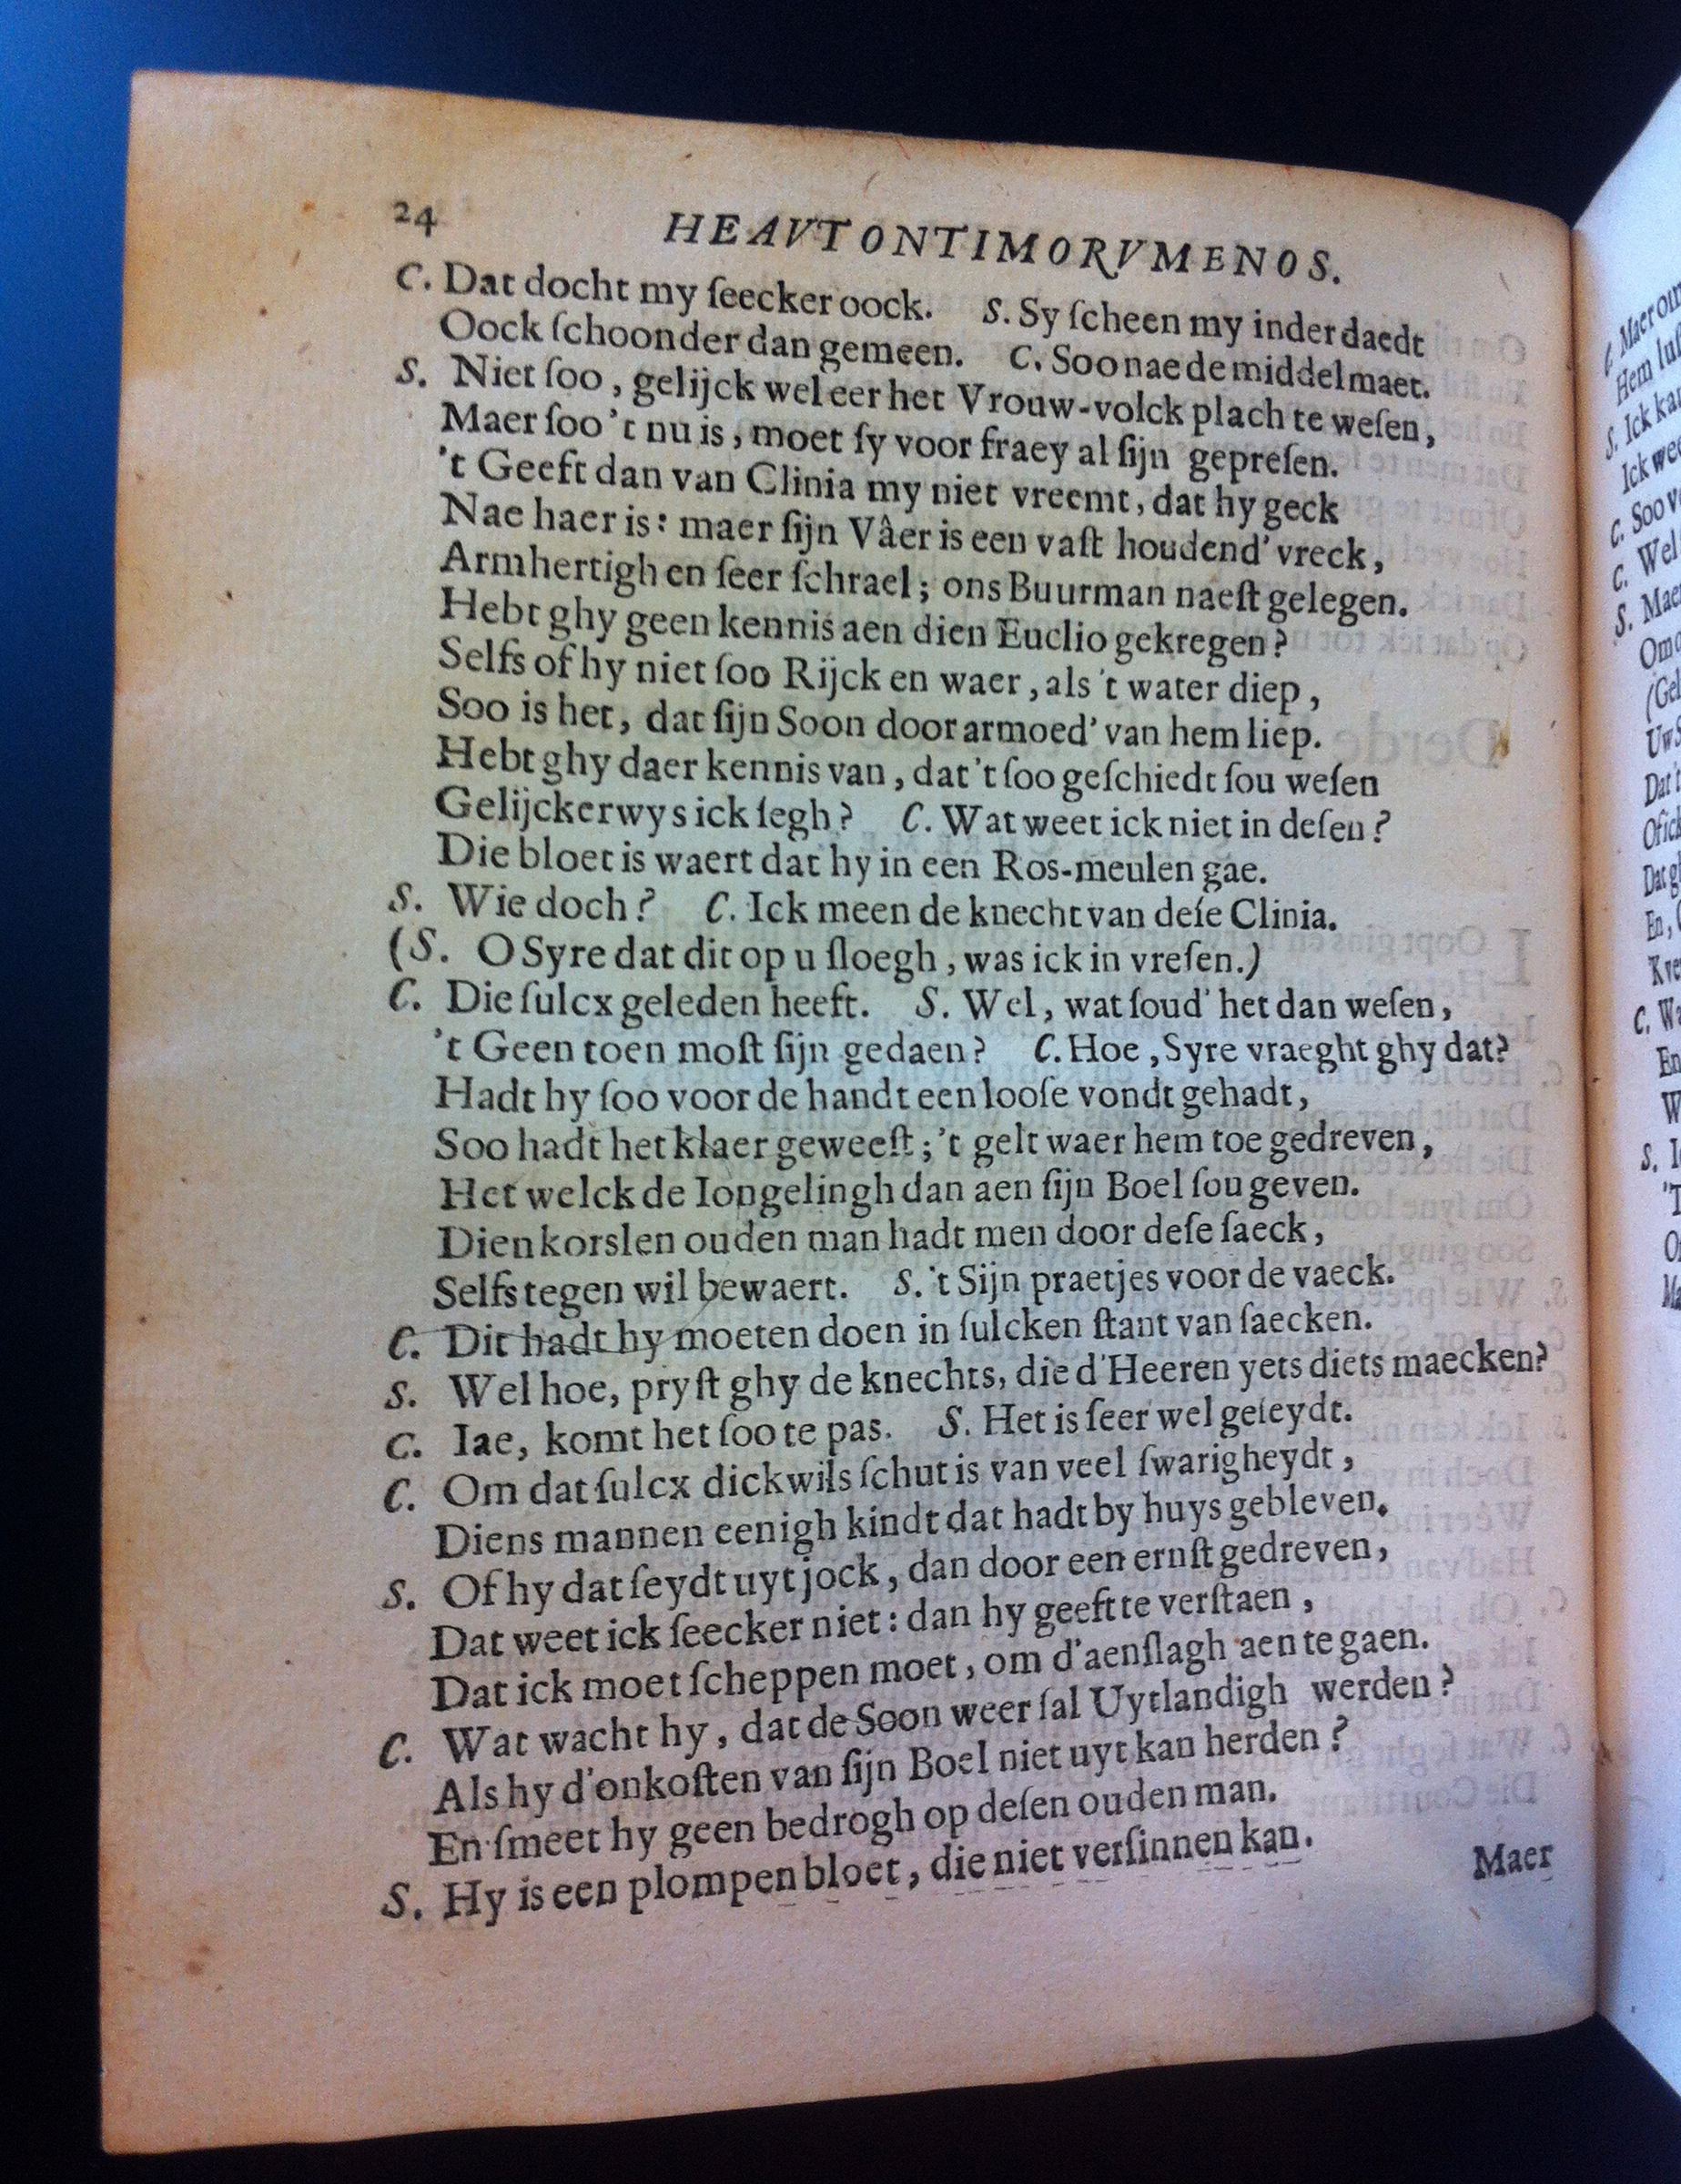 24 HEAVTONTIMORVMENOS.
C. Dat docht my ſeecker oock. S. Sy ſcheen my inder daedt
Oock ſchoonder dan gemeen. C. Soo nae de middelmaet.
S. Niet ſoo, gelijck wel eer het Vrouw-volck plach te weſen,
Maer ſoo 't nu is, moet ſy voor fraey al ſijn gepreſen.
't Geeft dan van Clinia my niet vreemt, dat hy geck
Nae haer is: maer ſijn Vâer is een vaſt houdend' vreck,
Armhertigh en ſeer ſchrael; ons Buurman naeſt gelegen.
Hebt ghy geen kennis aen dien Euclio gekregen?
Selfs of hy niet ſoo Rijck en waer, als 't water diep,
Soo is het, dat ſijn Soon door armoed' van hem liep.
Hebt ghy daer kennis van, dat 't ſoo geſchiedt ſou weſen
Gelijckerwys ick ſegh? C. Wat weet ick niet in deſen?
Die bloet is waert dat hy in een Ros-meulen gae.
S. Wie doch? C. Ick meen de knecht van deſe Clinia.
(S. O Syre dat dit op u ſloegh, was ick in vreſen.)
C. Die ſulcx geleden heeft. S. Wel, wat ſoud' het dan weſen,
't Geen toen moſt ſijn gedaen? C. Hoe, Syre vraeght ghy dat?
Hadt hy ſoo voor de handt een looſe vondt gehadt,
Soo hadt het klaer geweeſt; 't gelt waer hem toe gedreven,
Het welck de Iongelingh dan aen ſijn Boel ſou geven.
Dien korslen ouden man hadt men door deſe ſaeck,
Selfs tegen wil bewaert. S. 't Sijn praetjes voor de vaeck.
C. Dit hadt hy moeten doen in ſulcken ſtant van ſaecken.
S. Wel hoe, pryſt ghy de knechts, die d'Heeren yets diets maecken?
C. Iae, komt het ſoo te pas. S. Het is ſeer wel geſeydt.
C. Om dat ſulcx dickwils ſchut is van veel ſwarigheydt,
Diens mannen eenigh kindt dat hadt by huys gebleven.
S. Of hy dat ſeydt uyt jock, dan door een ernſt gedreven,
Dat weet ick ſeecker niet: dan hy geeft te verſtaen,
Dat ick moet ſcheppen moet, om d'aenſlagh aen te gaen.
C. Wat wacht hy, dat de Soon weer ſal Uytlandigh werden?
Als hy d'onkoſten van ſijn Boel niet uyt kan herden?
En ſmeet hy geen bedrogh op deſen ouden man.
S. Hy is een plompen bloet, die niet verſinnen kan.
Maer